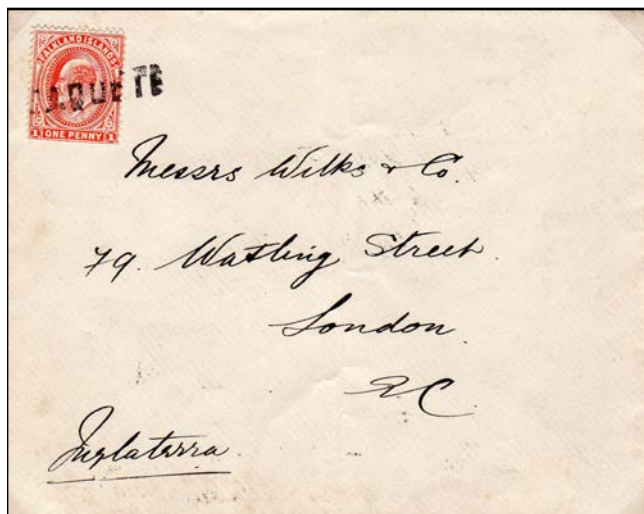 FALKLAND ISLANDS
PAQUETE
1 ONE PENNY 1
Messrs Wilks & Co.
79. Watling Street.
London.
E C
Inglaterra